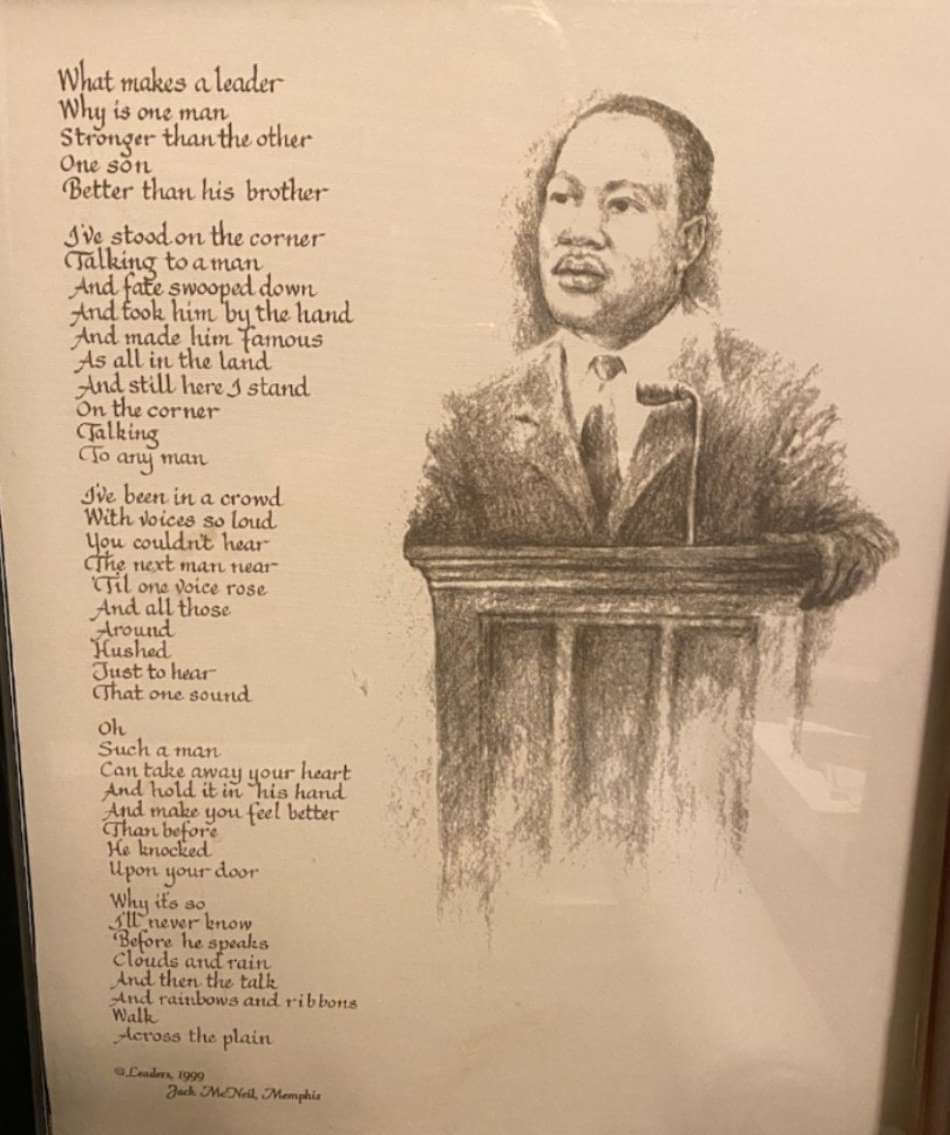 What makes a leader
Why is one man
Stronger than the other
One son
Better than his brother
I've stood on the corner
Talking to a man
And fate swooped down
And took him by the hand
And made him famous
As all in the land
And still here I stand
On the corner
Talking
To any man
I've been in a crowd
With voices so loud
You couldn't hear
The next man near
'Til one voice rose
And all those
Around
Hushed
Just to hear
That one sound
Oh
Such a man
Can take away your heart
And hold it in his hand
And make you feel better
Than before
He knocked
Upon your door
Why it's so
I'll never know
Before he speaks
Clouds and rain
And then the talk
And rainbows and ribbons
Walk
Across the plain
© Leaders, 1999
Jack McNeil, Memphis